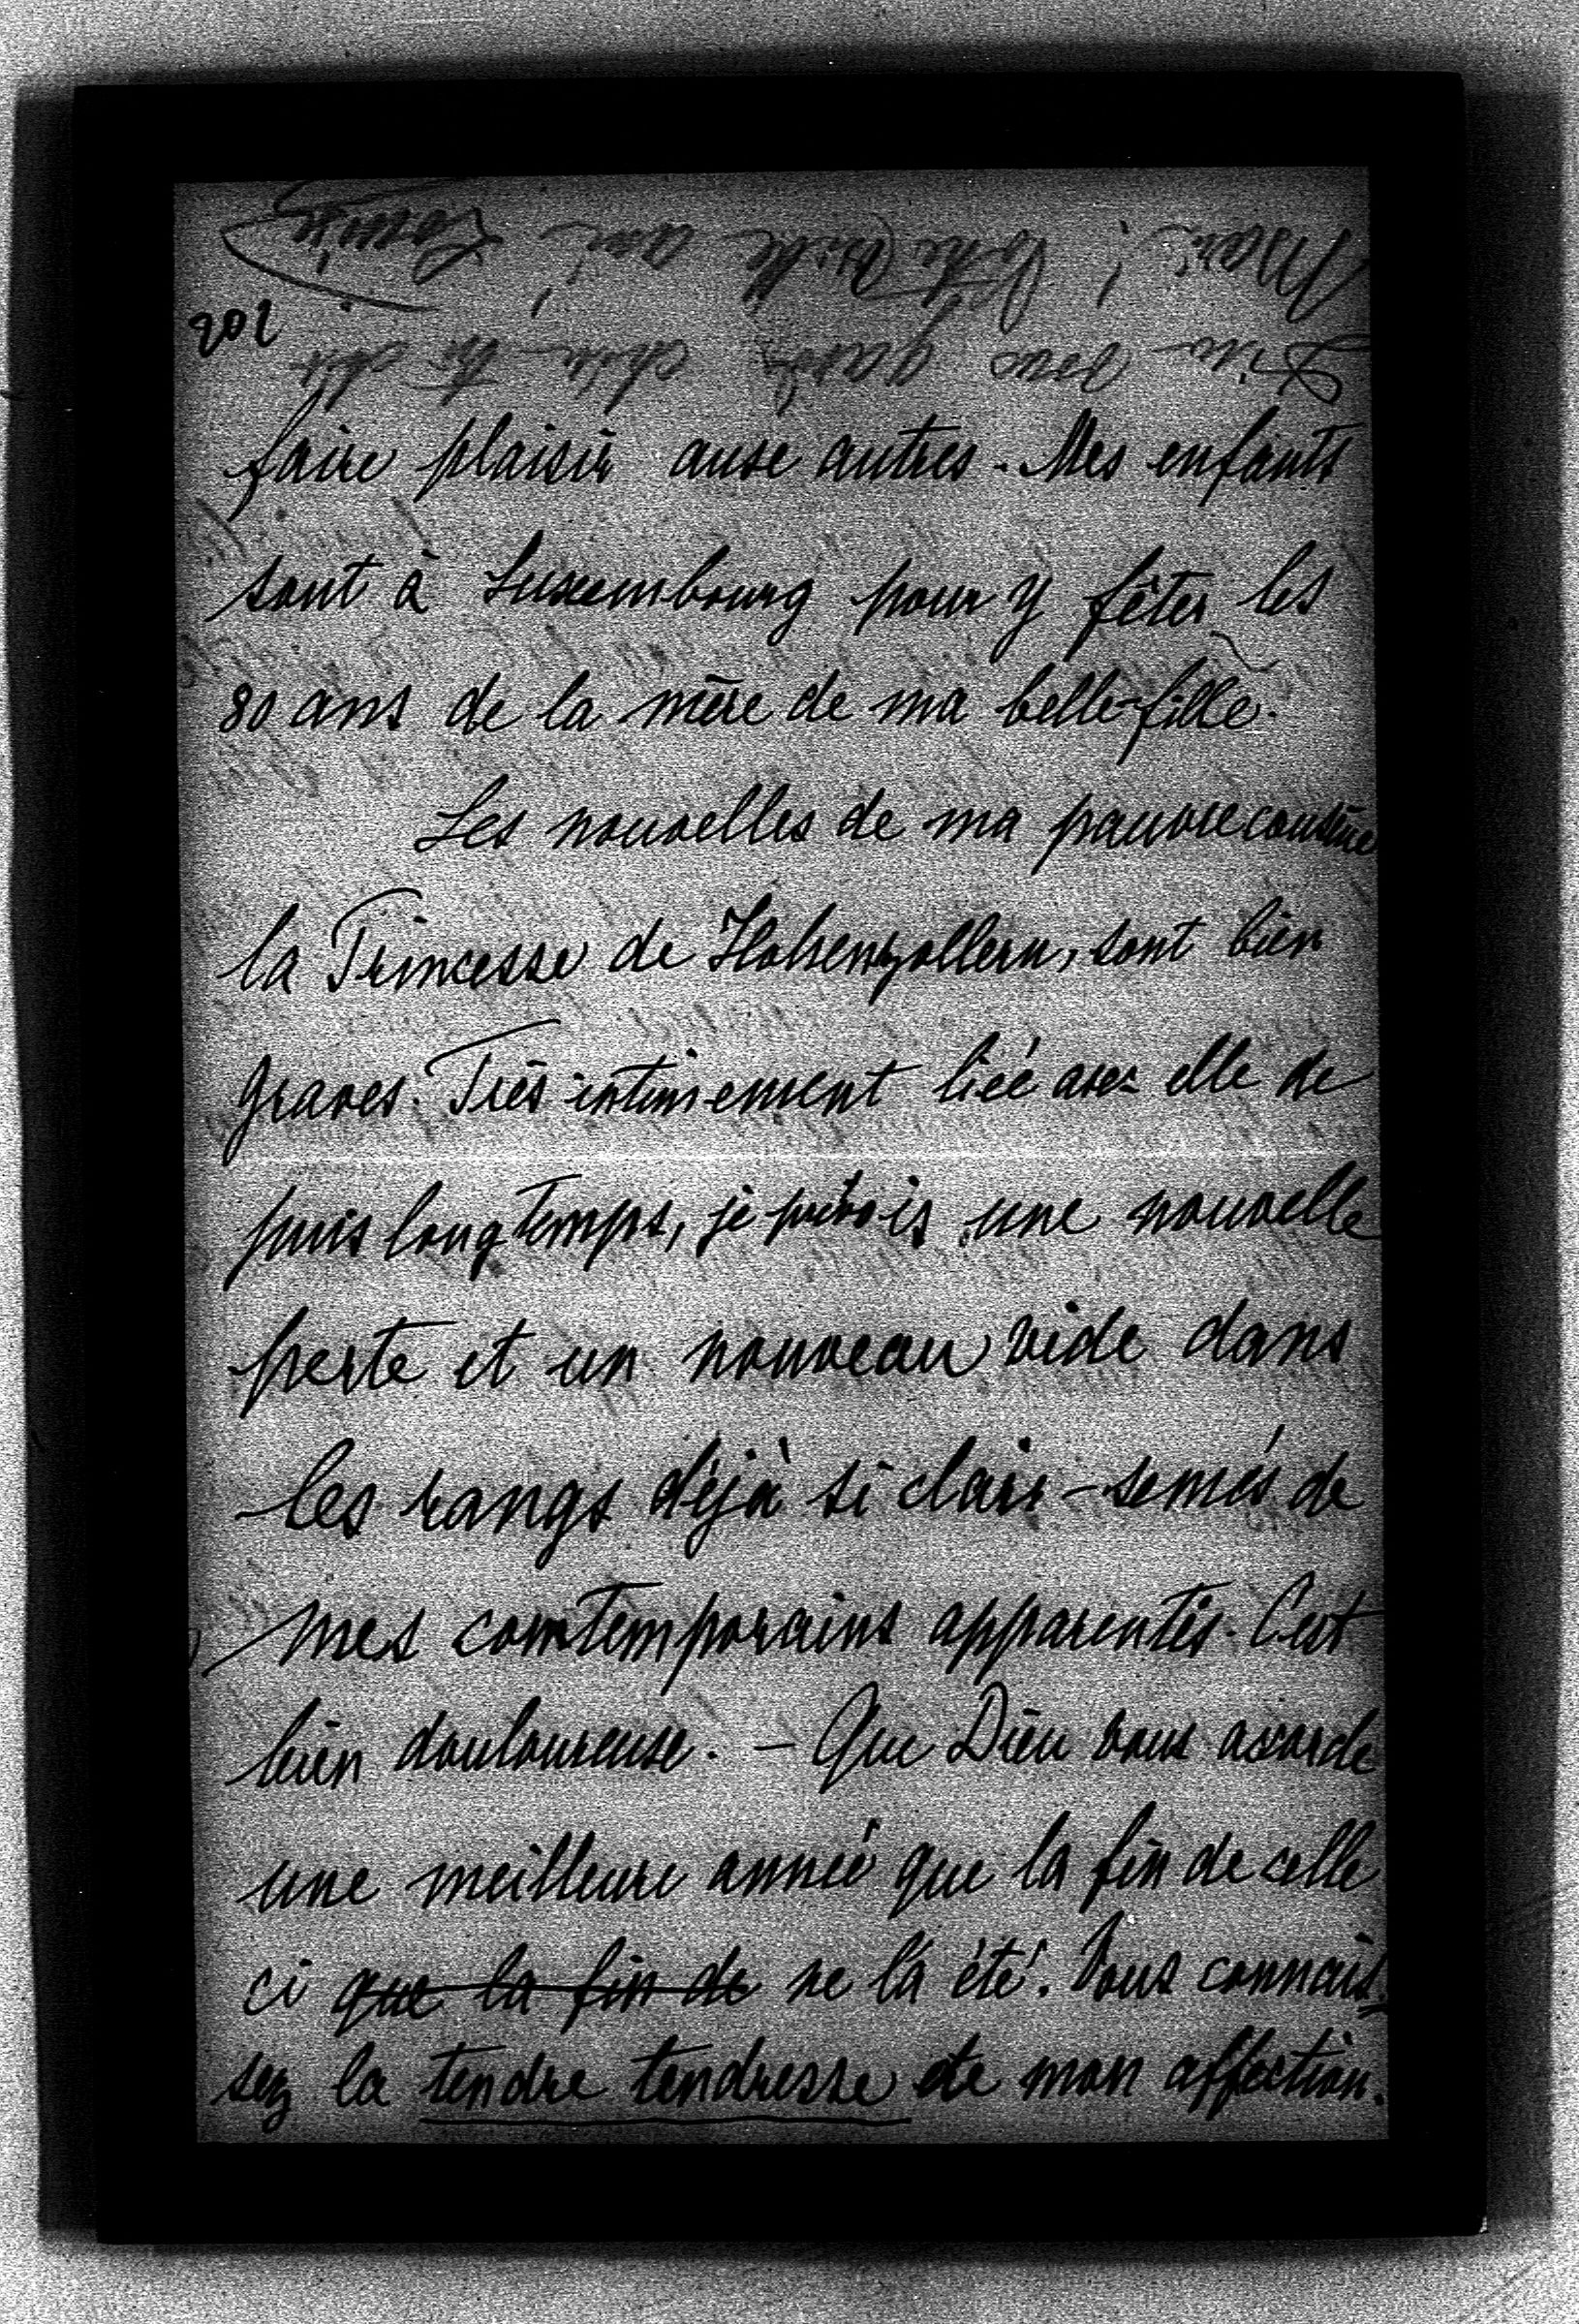 202
faire plaisir auxe autres. Mes enfants
sont à Luxembourg pour y fêter les
80 ans de la mère de ma belle-fille.
Les nouvelles de ma pauvre cousine
la Princesse de Hohenzollern, sont bien
graves. Très intimement liée avec elle de
puis longtemps, je prévois une nouvelle
perte et un nouveau vide dans
les rangs déjà si clair-semés de
mes comtemporains apparentés. C'est
bien douloureuse. - Que Dieu vous accorde
une meilleure année que la fin de celle
ci que la fin de ne l'a été. Vous connais
sez la tendre tendresse de mon affection.
Dieu vous garde cher
Marie! Votre vieille amie Louise